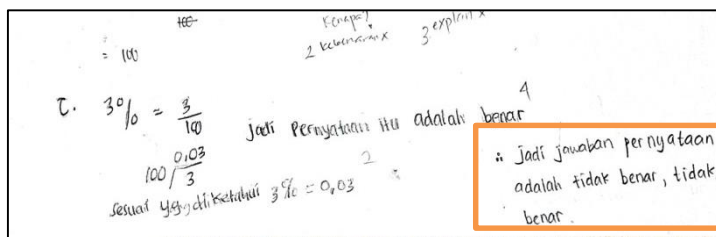 100
Kenapa?
= 100
2 kebenaran x 3 explain x
C. 3% = 3/100 jadi Pernyataan itu adalah benar 4
0,03
100/3
sesuai yg diketahui 3% = 0,03 2
∴ jadi jawaban pernyataan
adalah tidak benar, tidak
benar.